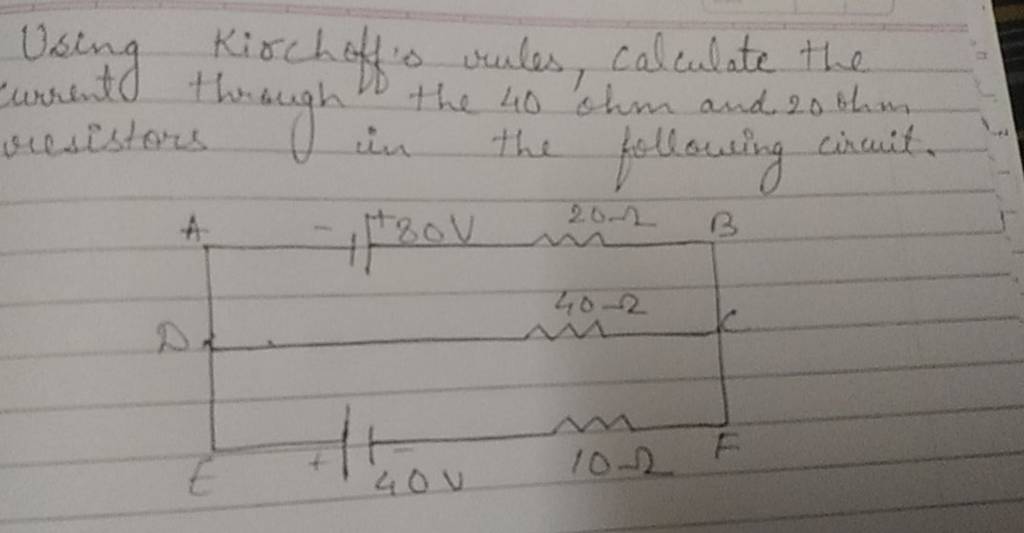 Using Kirchoff's rules, calculate the
current through the 40 ohm and 20 ohm
resistors in the following circuit.
A - + 80V 20Ω B
40Ω
D C
E + - 40V 10Ω F